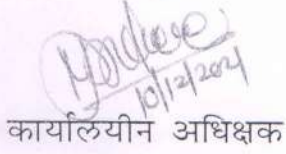 10/12/2024
कार्यालयीन अधिक्षक